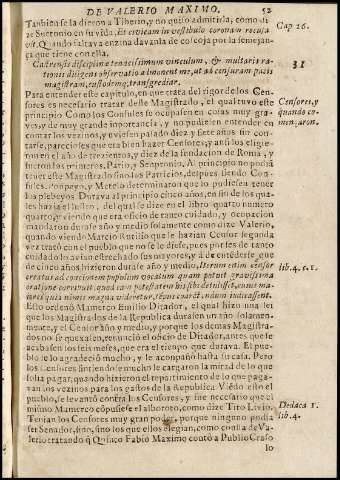 DE VALERIO MAXIMO. 52
Tambien se la dieron a Tiberio, y no quiso admitirla, como di-
Cap 26.
ze Suetonio en su vida. Et civicam in vestibulo coronam recusa
vit. Quando saltava enzina davanla de coscoja por la semejan-
ça que tiene con ella.
Castrensis disciplinæ tenacissimum vinculum, & militaris ra-
31
tionis diligens observatio admonent me, ut ad censuram pacis
magistram, custodemq; transgrediar.
Para entender este capitulo, en que trata del rigor de los Cen-
sores es necesario tratar deste Magistrado, el qual tuvo este
Censores, y
principio Como los Consules se ocupasen en cosas muy gra-
quando co-
ves, y de mucha importancia, y no pudiesen entender en
mençaron.
contar los vezinos, y oviesen palado diez y siete años sin con-
tarse, parecioles que era bien hazer Censores; y ansi los eligie-
ron en el año de trezientos, y diez de la fundacion de Roma, y
fueron los primeros, Papirio, y Sempronio. Al principio no podia
tener este Magistrado sino los Patricios, despues siendo Con-
sules Pompeyo, y Metello determinaron que lo pudiesen tener
los plebeyos. Durava al principio cinco años, en fin de los qua-
les hazia el lustro, del qual se dize en el libro quarto numero
quarto; y viendo que era oficio de tanto cuidado, y ocupacion
mandaron durase año y medio solamente como dize Valerio,
quando viendo Marcio Rutilio que le hazian Censor segunda
vez trató con el pueblo que no se le diese, pues por ser de tanto
cuidado lo avian estrechado sus mayores, y á de entéderse, que
de cinco años hizieron durase año y medio, Iterum enim censor
lib. 4. c. 1.
creatus ad concionem populum vocatum quam potuit gravissima
oratione corripuit, quod eam potestatem bis sibi detulisset, cuius ma-
iores quia nimis magna videretur, tempus coarctandum iudicassent.
Esto ordenó Mamerco Emilio Ditador, el qual hizo una lei
que los Magistrados de la Republica durasen un año solamen-
mente, y el Censor año y medio, y porque los demas Magistra-
dos no se quexasen, renunció el oficio de Ditador, antes que se
acabasen los seis meses, que era el tiempo que durava. El pue-
blo se lo agradeció mucho, y le acompañó hasta su casa. Pero
los Censores sintiendose mucho le cargaron la mitad de lo que
solia pagar, quando hizieron el repartimiento de lo que paga-
van los vezinos para los gastos de la Republica. Viédo ello el
pueblo, se levantó contra los Censores, y fue necesario que el
mismo Mamerco cópusiese el alboroto, como dize Tito Livio.
Decada 1.
Tenian los Censores muy gran poder, porque ninguno podia
lib 4.
ser Senador, sino, sino los que ellos elegian, como consta de Va-
lerio tratando q̃ Quinto Fabio Maximo contó a Publio Craso
lo